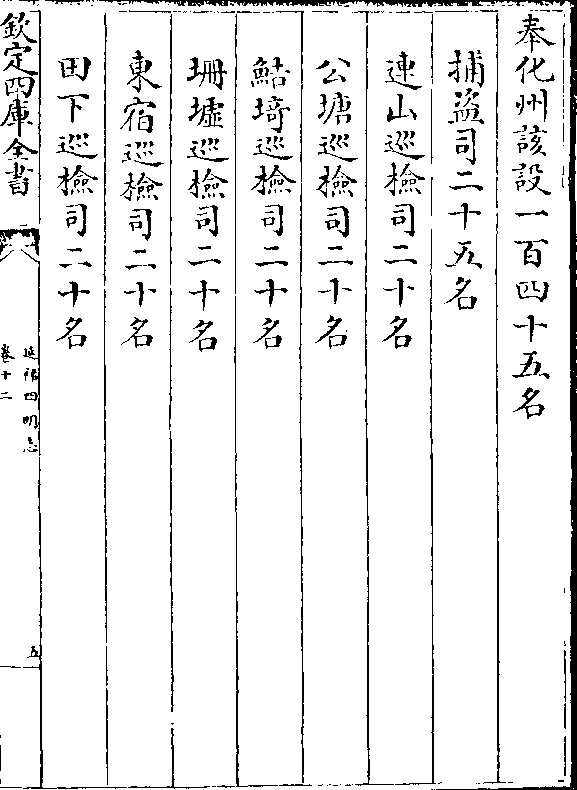 奉化州該設一百四十五名
捕盜司二十五名
連山巡檢司二十名
公塘巡檢司二十名
鮚埼巡檢司二十名
柵墟巡檢司二十名
東宿巡檢司二十名
田下巡檢司二十名
欽定四庫全書
延祐四明志
卷十二
五